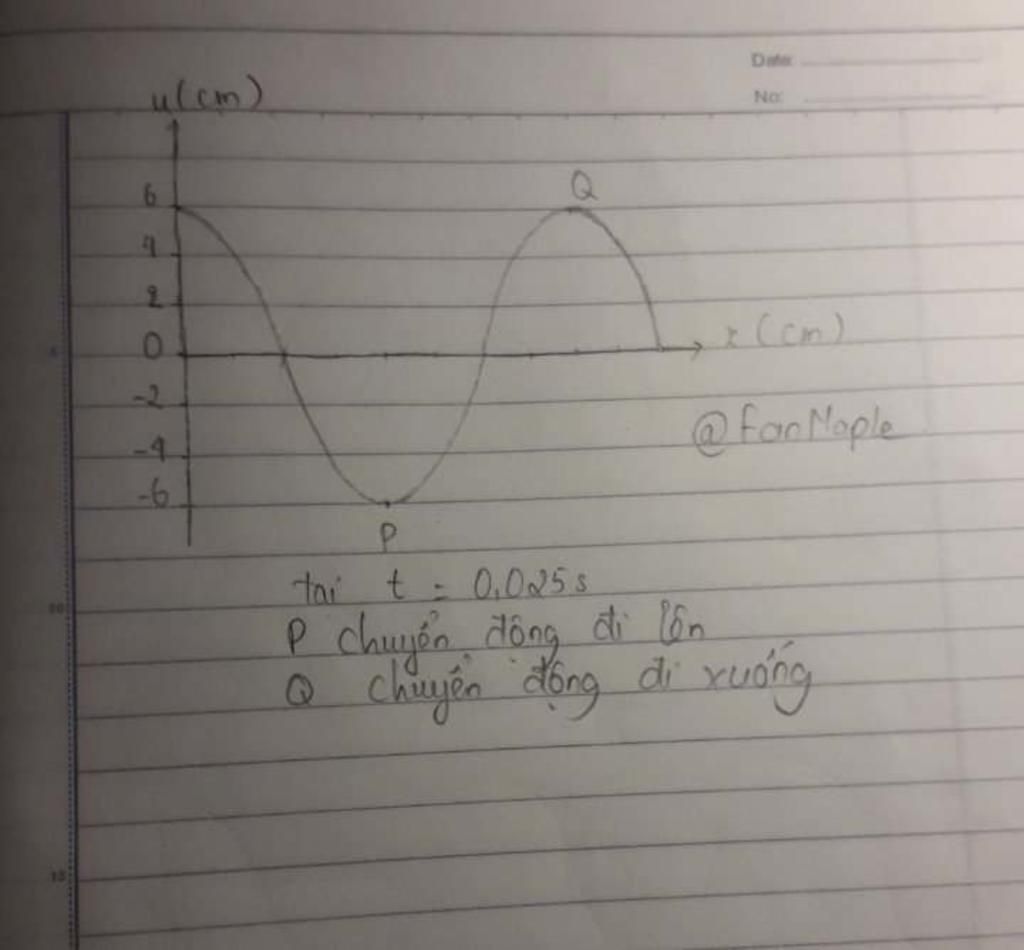 Date:
No:
u(cm)
6
4
2
0
-2
-4
-6
Q
x (cm)
@fanMaple
P
tại t = 0,025s
P chuyển động đi lên
Q chuyển động đi xuống
10
15